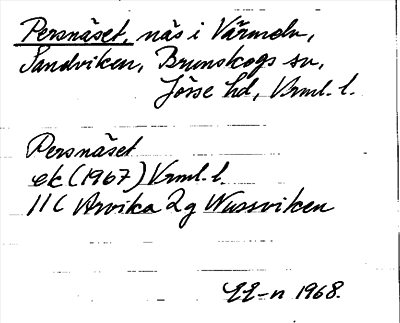 Persnäset, näs i Värmeln,
Sandviken, Brunskogs sn,
Jösse hd, Vrml. l.
Persnäset
ek (1967) Vrml. l.
11C Arvika 2g Wussviken
1968.